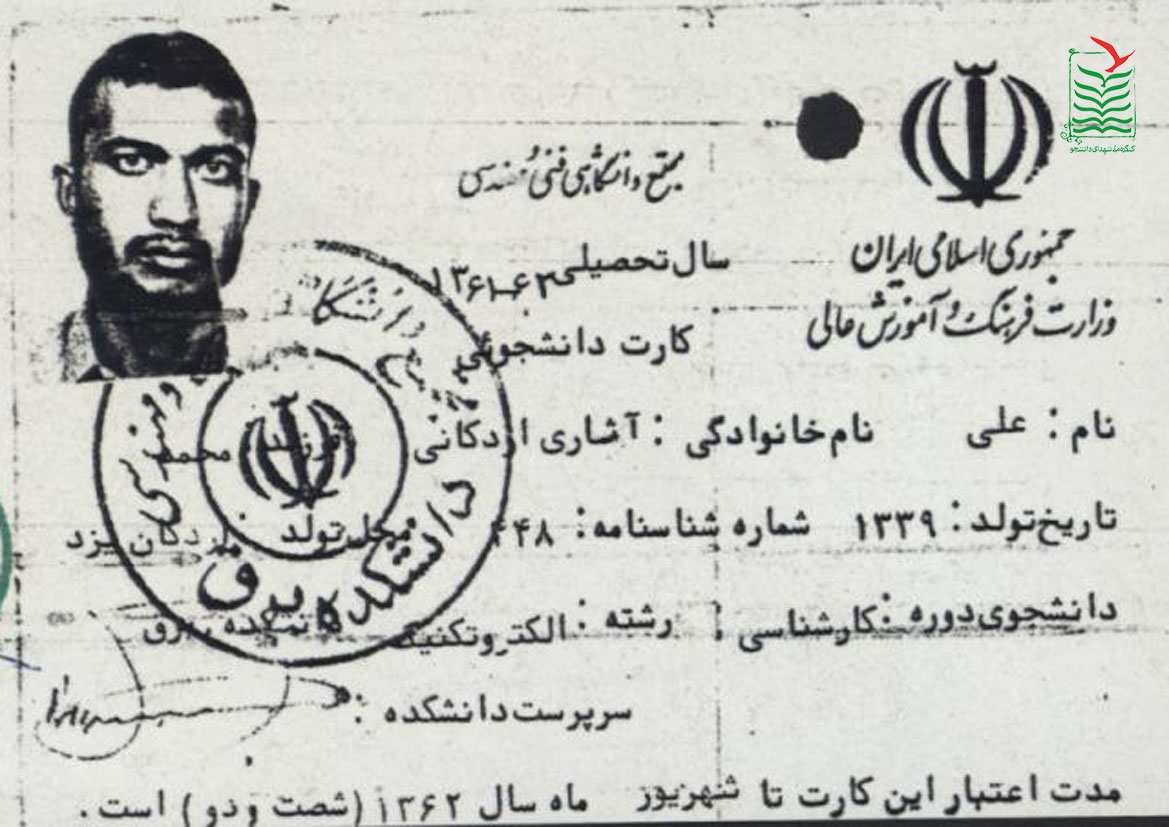 کنگره ملی شهدای دانشجو
جمهوری اسلامی ایران
وزارت فرهنگ و آموزش عالی
مجتمع دانشگاهی فنی و مهندسی
سال تحصیلی ۱۳۶۱-۶۲
کارت دانشجوئی
نام : علی نام خانوادگی : آشاری اردکانی فرزند : محمد
تاریخ تولد : ۱۳۳۹ شماره شناسنامه : ۴۴۸ محل تولد : اردکان یزد
دانشجوی دوره : کارشناسی رشته : الکتروتکنیک دانشکده برق
سرپرست دانشکده :
مدت اعتبار این کارت تا شهریور ماه سال ۱۳۶۲ (شصت و دو) است .
دانشکده برق